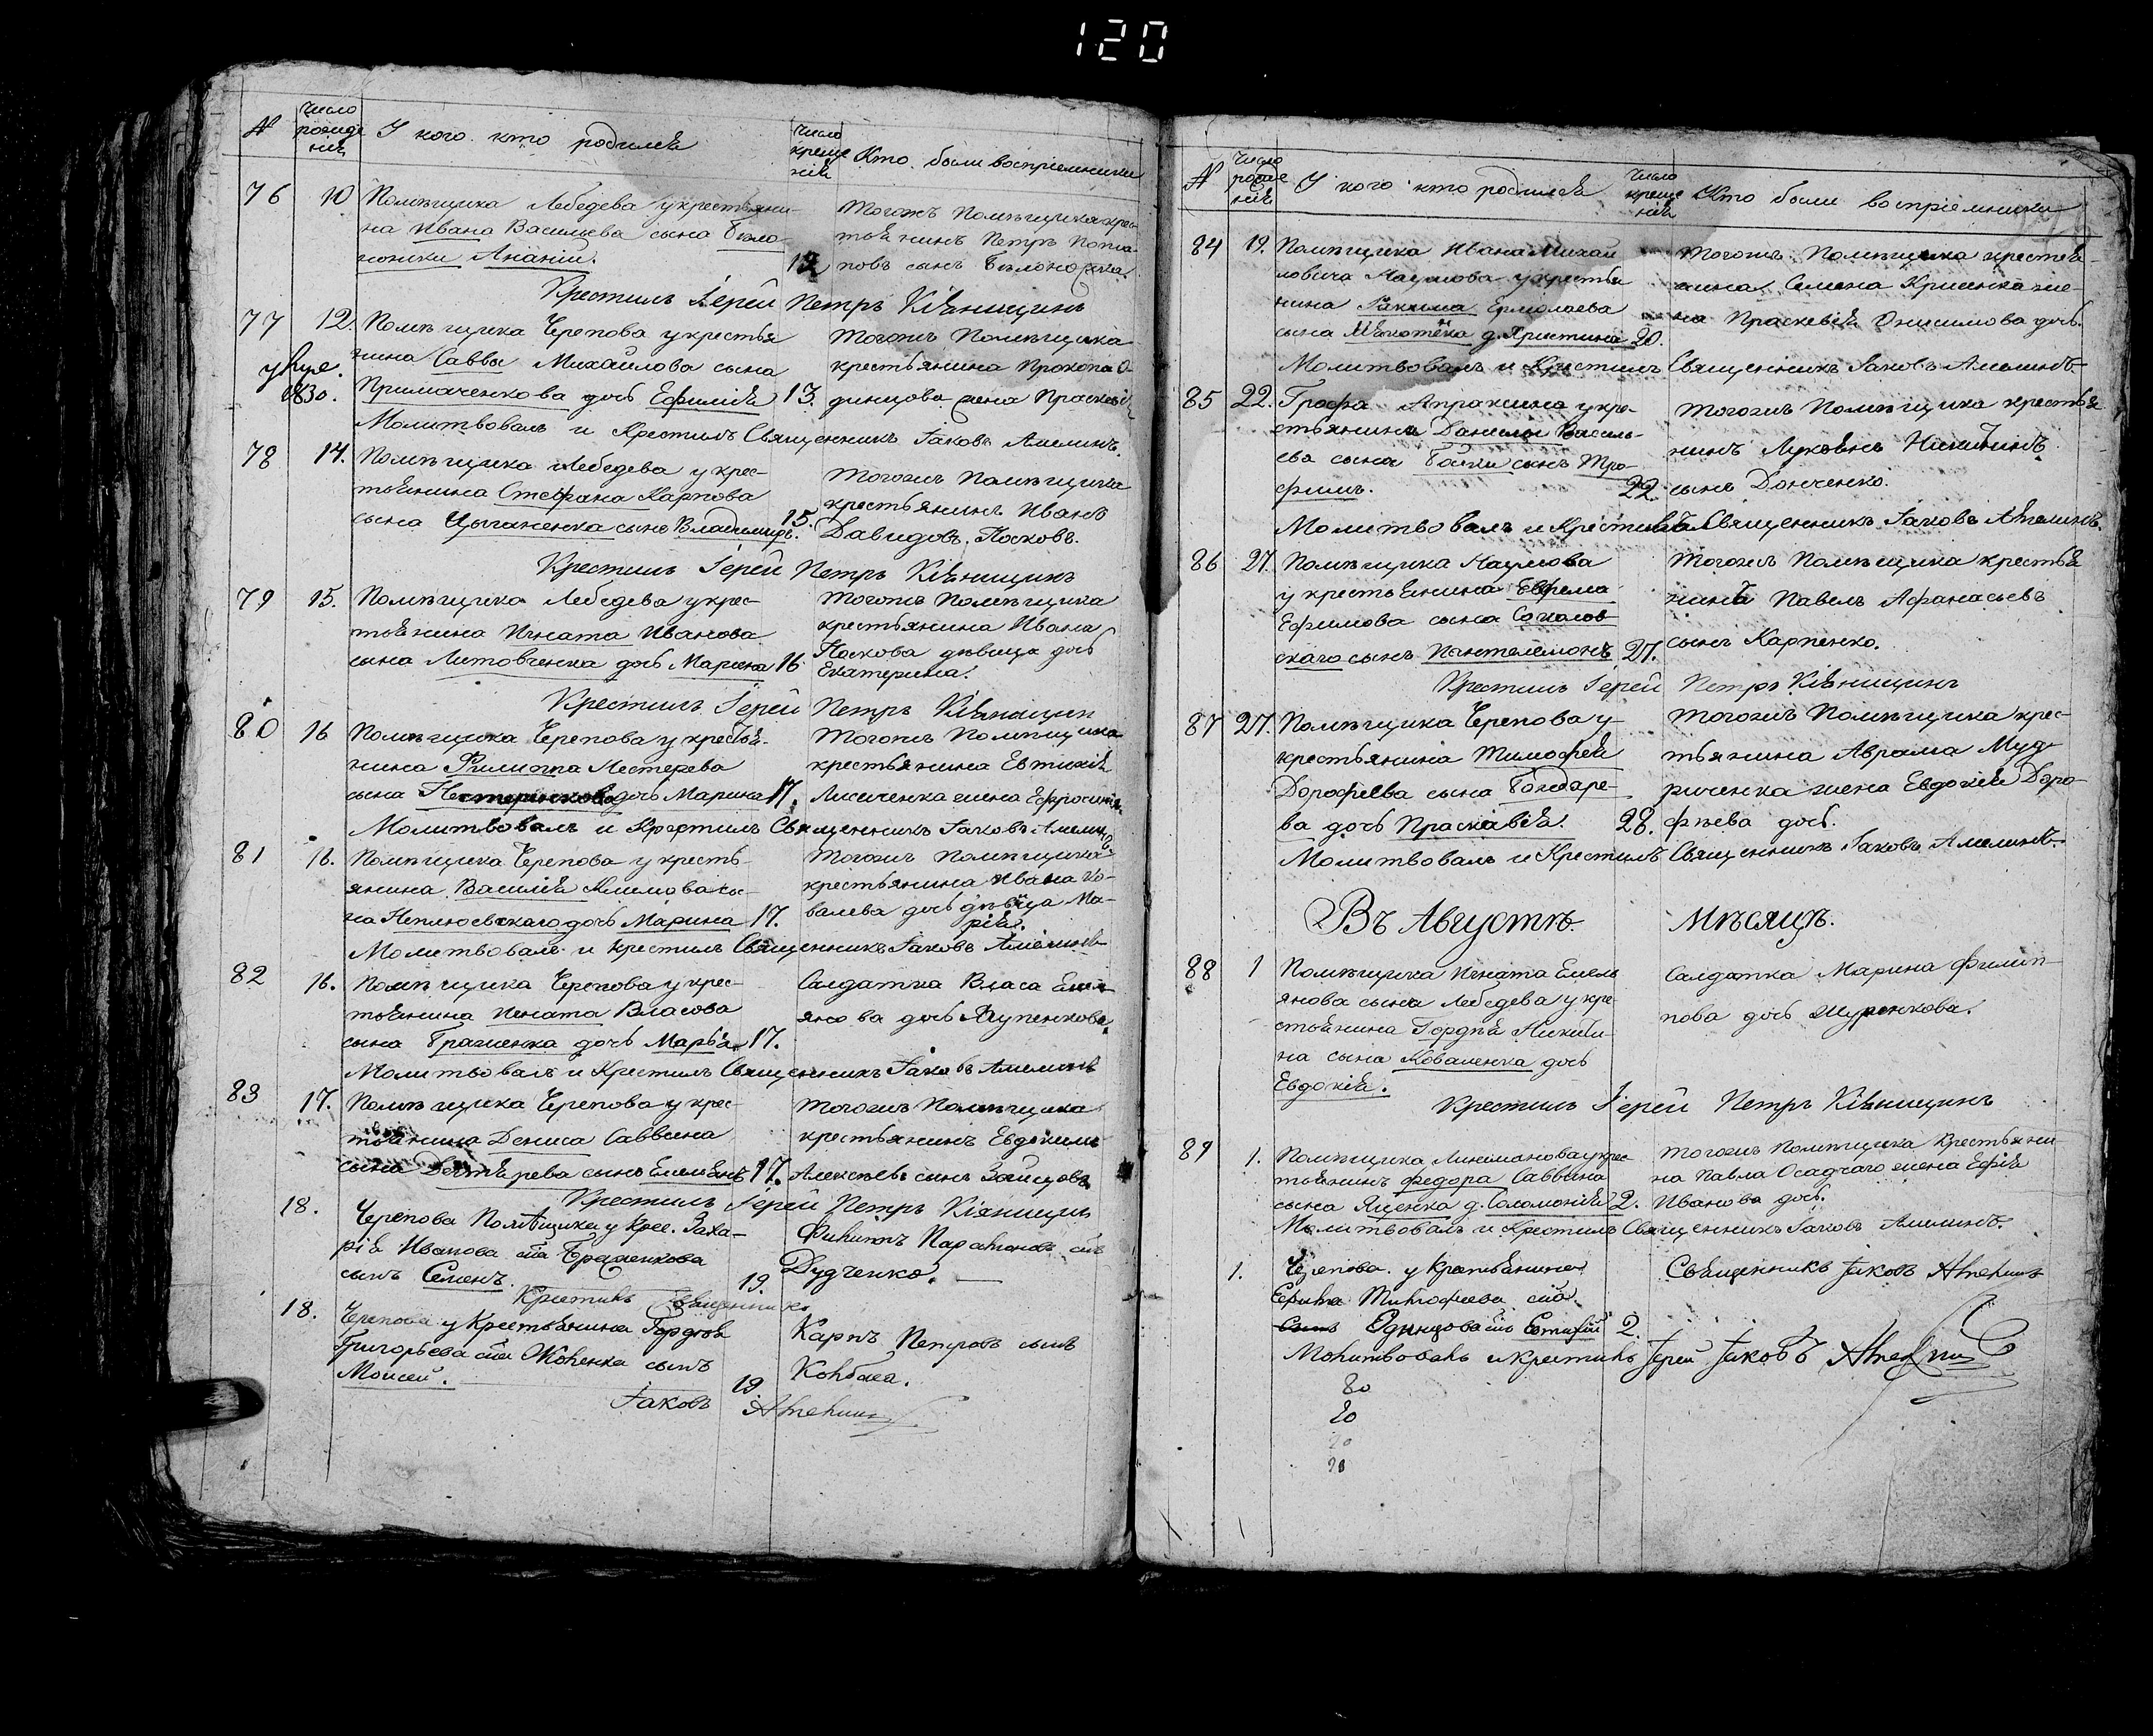 120
№ Число рожде нія У кого кто родился Число креще нія Кто были воспріемники
76 10 Помѣщика Лебедева у крестьяни-
на Ивана Васильева сына Бѣло
ножки Ананій. 12
Тогожъ Помѣщика крес-
тьянинъ Петръ Потапповъ сынъ Бѣлоножка.
Крестилъ Іерей Петръ Кіяницинъ
77 12. Помѣщика Черепова у крестья
нина Саввы Михайлова сына
Примаченкова дочь Ефимія 13.
1830.
Тогожъ Помѣщика
крестьянина Прокопа О-
динцова жена Праскевія
Молитвовалъ и Крестилъ Священникъ Іаковъ Амелинъ.
78 14. Помѣщика Лебедева у крес-
тьянина Стефана Карпова
сына Цыганенка сынъ Владимиръ. 15.
Тогожъ Помѣщика
крестьянинъ Иванъ
Давидовъ Носковъ.
Крестилъ Іерей Петръ Кіяницинъ
79 15. Помѣщика Лебедева у крес-
тьянина Игната Иванова
сына Литовченка дочь Марина 16
Тогожъ Помѣщика
крестьянина Ивана
Носкова дѣвица дочь
Екатерина.
Крестилъ Іерей Петръ Кіяницин
80 16 Помѣщика Черепова у крестья-
нина Филиппа Нестерева
сына Нестеренкова дочь Марина 17.
Тогожъ Помѣщика
крестьянина Евтихія
Лисиченка жена Ефросинія
Молитвовалъ и Крестилъ Священникъ Іаковъ Амелинъ
81 16. Помѣщика Черепова у кресть-
янина Василія Климова сы-
на Неплюевскаго дочь Марина 17.
Тогожъ Помѣщика
крестьянина Ивана Ко-
валева дочь дѣвица Ма-
рія.
Молитвовалъ и крестилъ Священникъ Іаковъ Амелинъ
82 16. Помѣщика Черепова у крес-
тьянина Игната Власова
сына Браженка дочь Марья 17.
Солдатка Власа Емель
янова дочь
Молитвовалъ и Крестилъ Священникъ Іаковъ Амелинъ
83 17. Помѣщика Черепова у крес-
тьянина Дениса Саввина
сына Дегтярева сынъ Емельянъ 17.
Тогожъ Помѣщика
крестьянинъ Евдокимъ
Алексѣевъ сынъ Зайцовъ
Крестилъ Іерей Петръ Кіяницин
18. Черепова Помѣщика у Крес. Заха-
рія Иванова сна Браженкова
сынъ Семенъ. 19.
Филиппъ Парамоновъ снъ
Дудченко.
Крестилъ Священникъ
18. Черепова у Крестьянина Гордея
Григорьева сна Жоленка сынъ
Моисей. 19
Карпъ Петровъ сынъ
Колбаса.
Іаковъ Амелинъ
№ Число рожде нія У кого кто родился Число креще нія Кто были воспріемники
84 19. Помѣщика Ивана Михай
ловича Наумова у крестья
нина Іакима Ермолаева
сына д. Христина 20.
Тогожъ Помѣщика крестья-
нина Семена же-
на Праскевія Онисимова дочь.
Молитвовалъ и Крестилъ Священникъ Іаковъ Амелинъ
85 22. Графа Апраксина у кре-
стьянина Данилы Василь-
ева сына Бойки сынъ Тро-
фимъ. 22
Тогожъ Помѣщика крестья
нинъ Лукьянъ Никитинъ
сынъ Донченко.
Молитвовалъ и Крестилъ Священникъ Іаковъ Амелинъ.
86 27. Помѣщика Наумова
у крестьянина Ефрема
Ефимова сына Соколов
скаго сынъ Пантелемонъ 27.
Тогожъ Помѣщика крестья
нинъ Павелъ Афанасьевъ
сынъ Карпенко.
Крестилъ Іерей Петръ Кіяницинъ
87 27. Помѣщика Черепова у
крестьянина Тимофея
Дорофѣева сына Бондаре-
ва дочь Праскавія. 28.
Тогожъ Помѣщика крес-
тьянина Аврама Муд-
риченка жена Евдокія Доро-
фѣева дочь.
Молитвовалъ и Крестилъ Священникъ Іаковъ Амелинъ
Въ Августѣ Мѣсяцѣ.
88 1 Помѣщика Игната Емель
янова сына Лебедева у кре
стьянина Гордѣя Никити-
на сына Коваленка дочь
Евдокія.
Солдатка Марина Филип-
пова дочь Шуренкова.
Крестилъ Іерей Петръ Кіяницинъ
89 1. Помѣщика у крес-
тьянинъ Федора Саввина
сына Яценка д. Соломонія 2.
Тогожъ Помѣщика Крестьяни
на Павла Осадчаго жена Ефія
Иванова дочь.
Молитвовалъ и Крестилъ Священникъ Іаковъ Амелинъ.
1. Черепова у Крестьянина
Ефима Тимофѣева сна
Сынъ Одинцова снъ Евтихій 2.
Священникъ Іаковъ Амелинъ
Молитвовалъ и Крестилъ Іерей Іаковъ Амелинъ
80
20
20
20